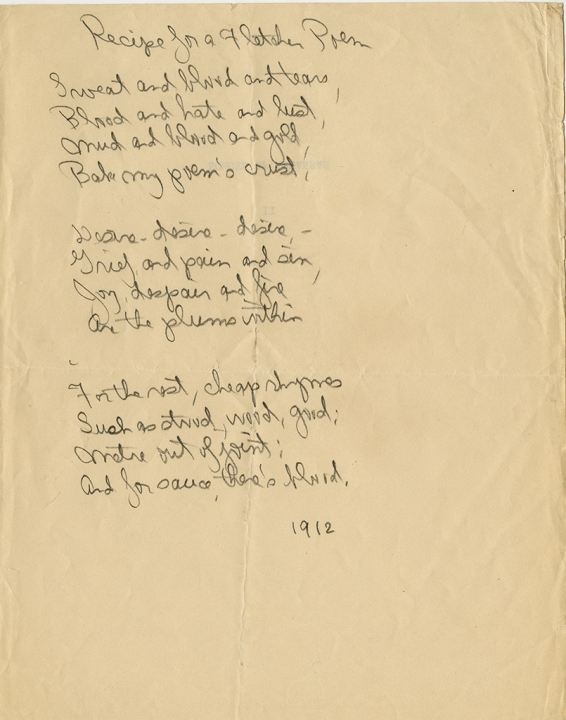 Recipe for a Fletcher Poem
Sweat and blood and tears,
Blood and hate and lust,
Mud and blood and gold,
Bake my poem's crust,
Desire - desire - desire, -
Grief and pain and sin,
Joy, despair and fire
Are the plums within
For the rest, cheap rhymes
Such as stood, wood, good;
Metre out of joint;
And for sauce, there's blood.
1912